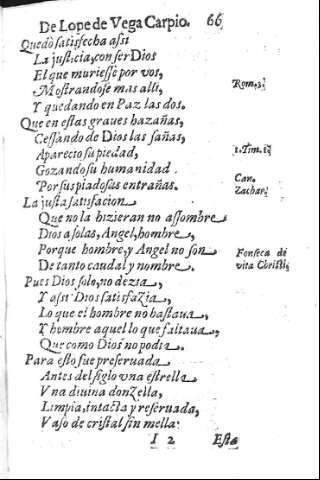 De Lope de Vega Carpio. 66
Quedò satisfecha assi
La justicia, con ser Dios
El que muriesse por vos,
Mostrandose mas alli, Rom. 3.
Y quedando en Paz las dos.
Que en estas graues hazañas,
Cessando de Dios las sañas,
Aparecio su piedad, 1. Tim. 1.
Gozando su humanidad.
Por sus piadosas entrañas. Can. Zachar.
La justa satisfacion
Que no la hizieran no assombre
Dios a solas, Angel, hombre,
Porque hombre, y Angel no son Fonseca de
De tanto caudal y nombre. vita Christi,
Pues Dios solo, no dezia,
Y assi Dios satisfazia,
Lo que el hombre no bastaua,
Y hombre aquel lo que faltaua,
Que como Dios no podia.
Para esto fue preseruada
Antes del siglo vna estrella
Vna diuina donzella,
Limpia, intacta y reseruada,
Vaso de cristal sin mella.
I 2 Esta